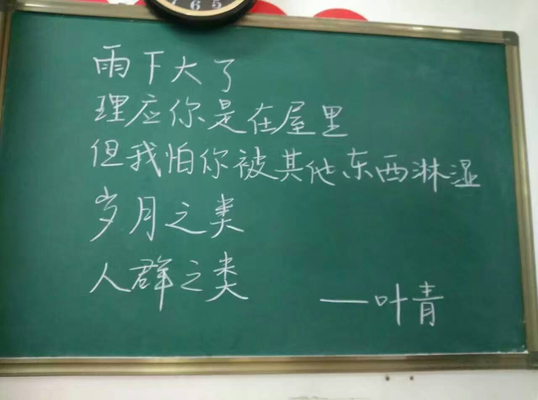 7 6 5
雨下大了
理应你是在屋里
但我怕你被其他东西淋湿
岁月之类
人群之类
——叶青